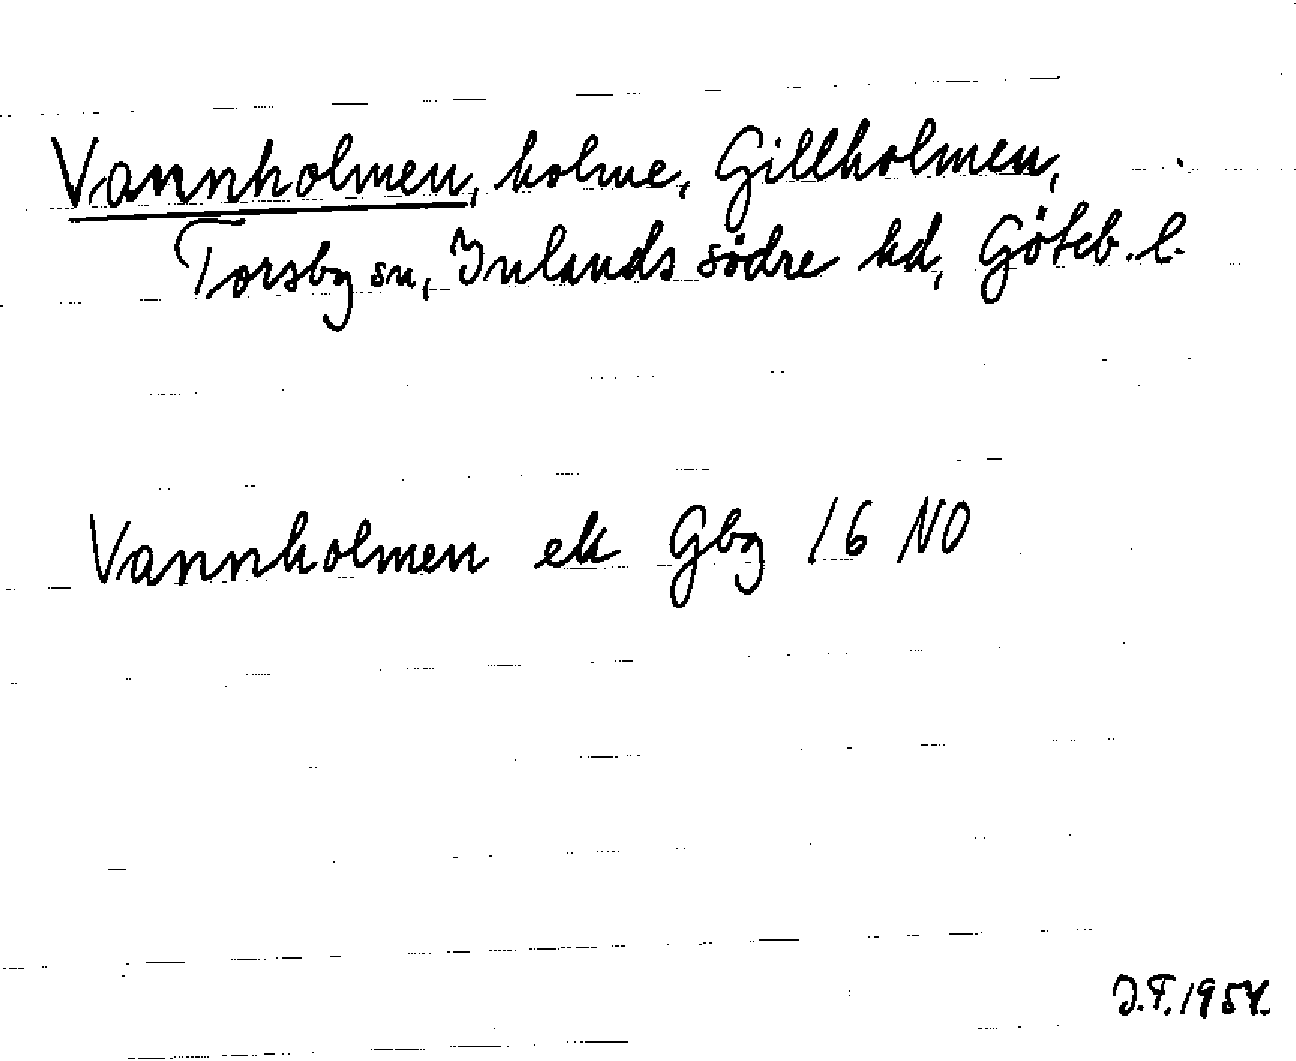 Vannholmen, holme, Gillholmen,
Torsby sn, Inlands södre hd, Göteb. l.
Vannholmen ek Gbg 16 NO
J.F. 1954.